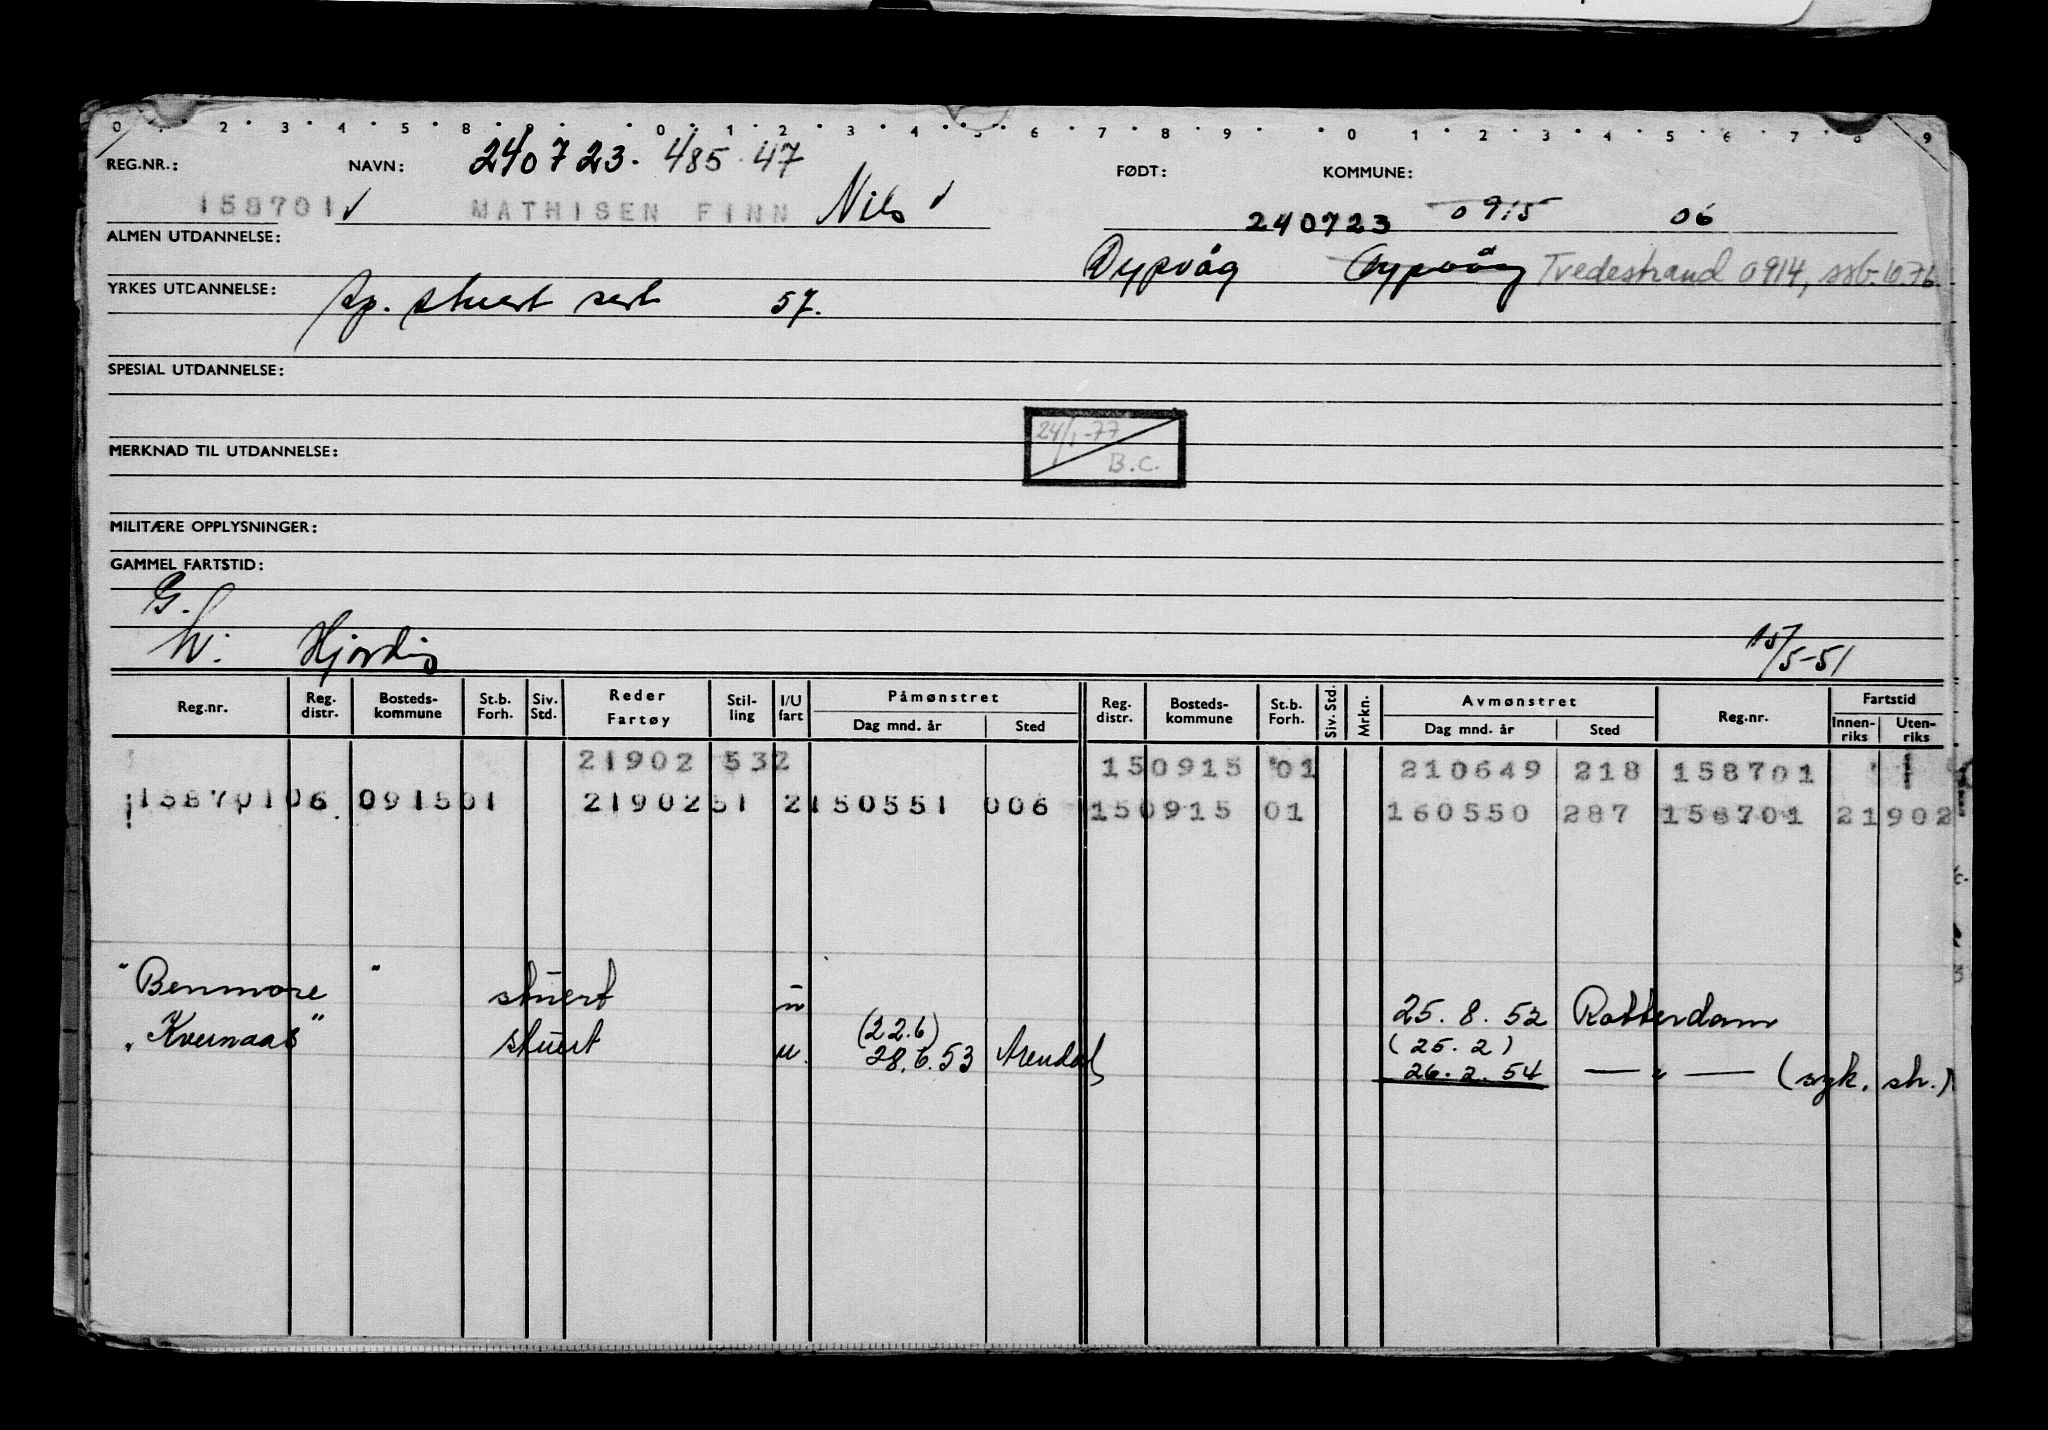 0 1 2 3 4 5 8 9 0 1 2 3 4 5 6 7 8 9 0 1 2 3 4 5 6 7 8 9
REG.NR.: NAVN: 240723. 485 47 FØDT: KOMMUNE:
158701 √ MATHISEN FINN Nils √ 240723 0915 06
ALMEN UTDANNELSE: Dypvåg Dypvåg Tvedestrand 0914, ssb. 10.76.
YRKES UTDANNELSE: Sp. stuert sert 57.
SPESIAL UTDANNELSE:
24/1-77
B.C.
MERKNAD TIL UTDANNELSE:
MILITÆRE OPPLYSNINGER:
GAMMEL FARTSTID:
G.
h: Hjørdis 15/5-51
Reg.nr. Reg. distr. Bosteds- kommune St.b. Forh. Siv. Std. Reder Fartøy Stil- ling I/U fart Påmønstret Dag mnd. år Sted Reg. distr. Bosteds- kommune St.b. Forh. Siv. Std. Mrkn. Avmønstret Dag mnd. år Sted Reg.nr. Fartstid Innen- riks Uten- riks
21902 532 150915 01 210649 218 158701
158701 06 091501 2190251 2150551 006 150915 01 160550 287 158701 21902
"Benmore" stuert u 25. 8. 52 Rotterdam
"Kvernaas" stuert u. (22.6) 28.6.53 Arendal (25.2) 26.2.54 — " — (syk. sh.)